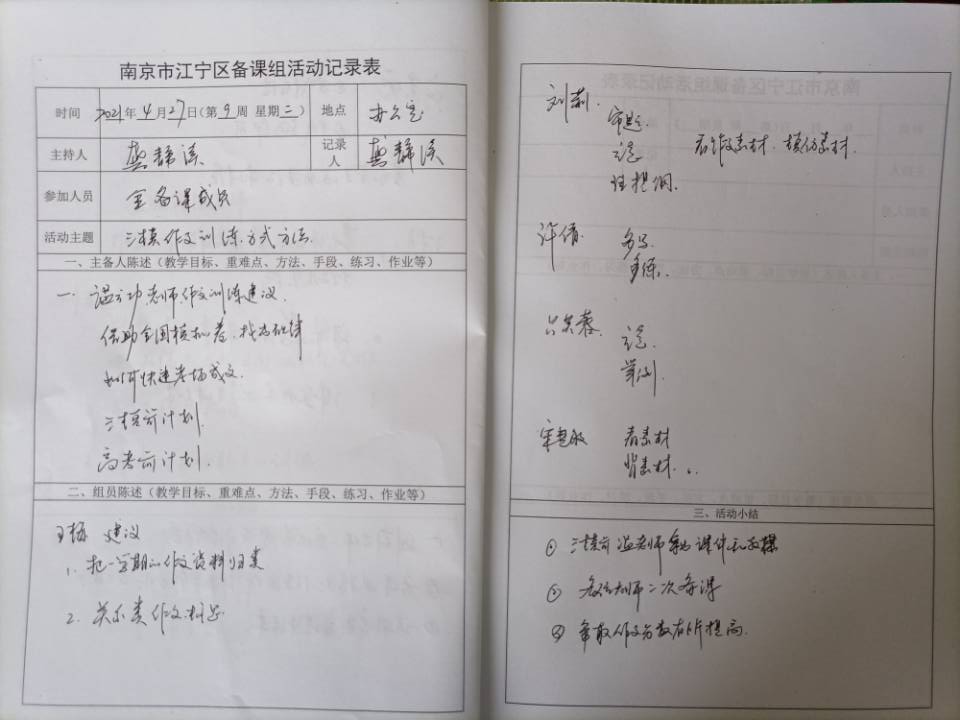 南京市江宁区备课组活动记录表
时间 2021年4月27日(第9周 星期二) 地点 办公室
主持人 龚静溪 记录人 龚静溪
参加人员 全备课成员
活动主题 三模作文训练方式方法
一、主备人陈述(教学目标、重难点、方法、手段、练习、作业等)
一. 温立功老师作文训练建议.
借助全国模拟卷,找出规律
如何快速考场成文.
三模前计划.
高考前计划.
二、组员陈述(教学目标、重难点、方法、手段、练习、作业等)
王杨 建议
1. 把一学期的作文资料归类
2. 关系类作文指导
刘莉.
审题.
立意. 看作文素材. 模仿素材.
列提纲.
许倩. 多写.
多练.
吕芙蓉. 立意.
举例.
看素材
背素材.
三、活动小结
① 三模前温老师 课件和
② 各位老师二次备课
③ 争取作文分数有所提高.